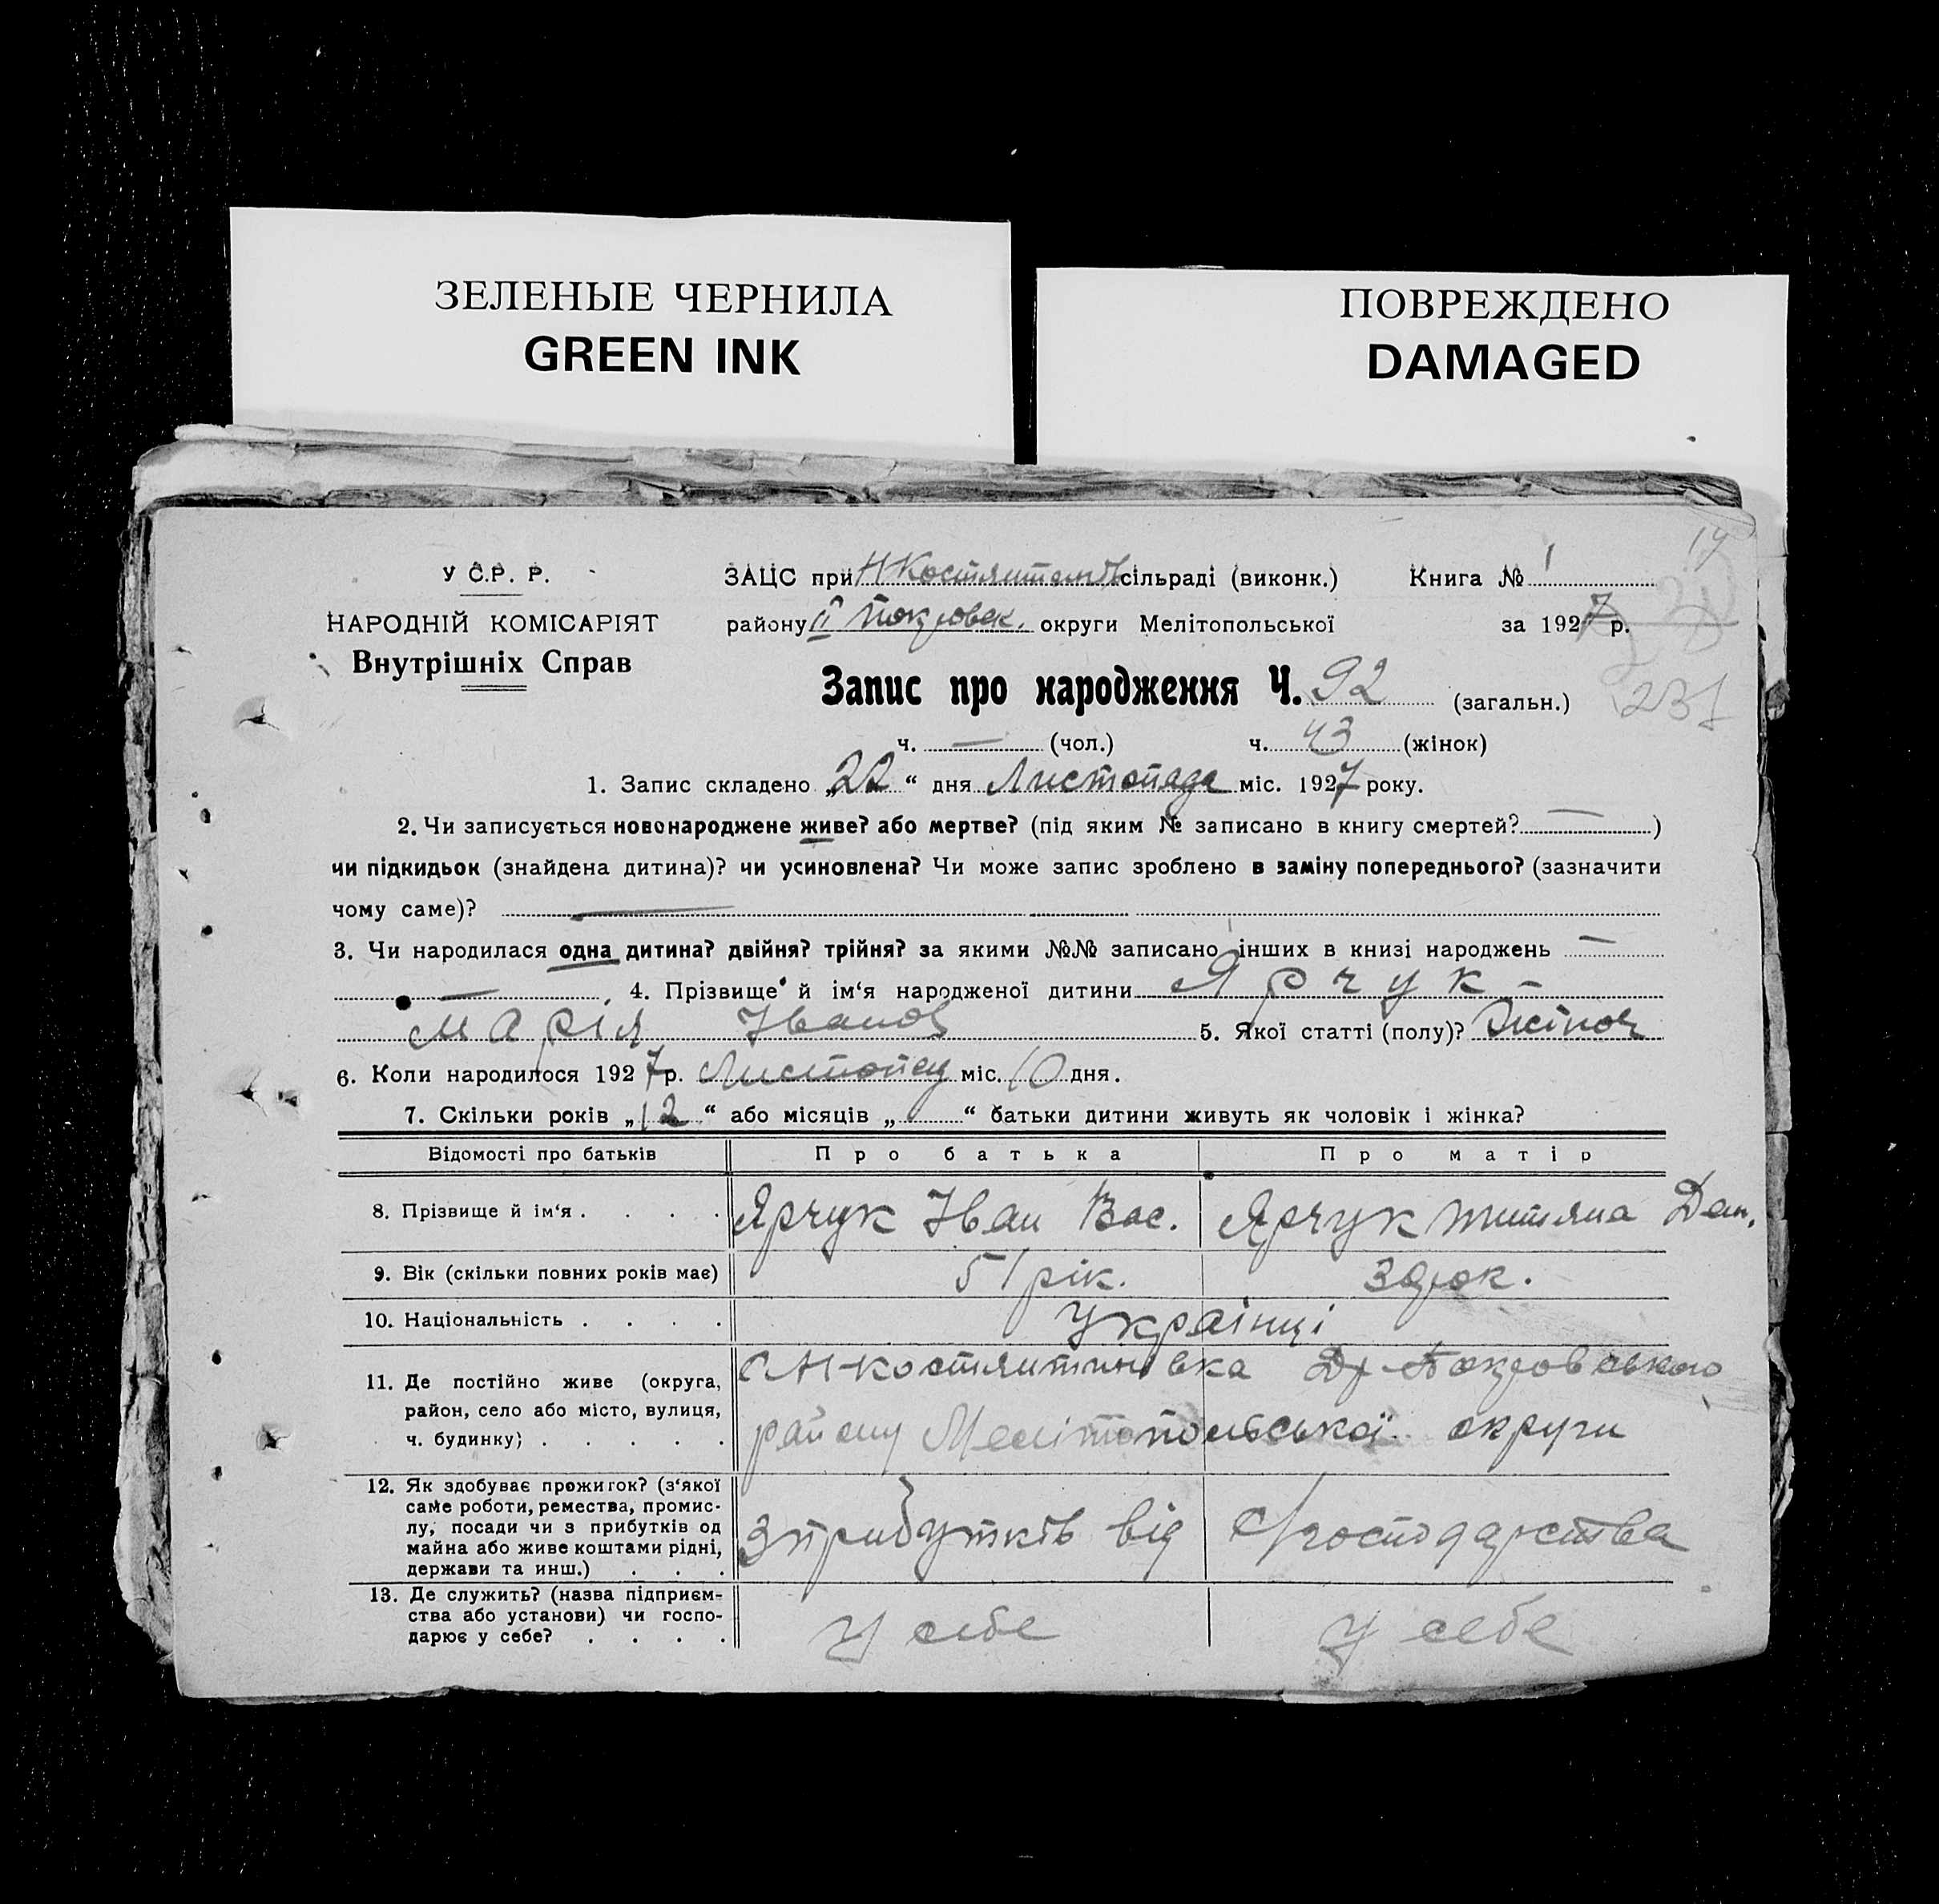 ЗЕЛЕНЫЕ ЧЕРНИЛА
GREEN INK
ПОВРЕЖДЕНО
DAMAGED
14
У С.Р. Р.
НАРОДНІЙ КОМІСАРІЯТ
Внутрішніх Справ
ЗАЦС при Н Костянтинів сільраді (виконк.) Книга № 1
району ІІ Покровск. округи Мелітопольської за 1927 р.
Запис про народження Ч. 92 (загальн.)
231
ч. — (чол.) ч. 43 (жінок)
1. Запис складено „22“ дня Листопада міс. 1927 року.
2. Чи записується новонароджене живе? або мертве? (під яким № записано в книгу смертей? — )
чи підкидьок (знайдена дитина)? чи усиновлена? Чи може запис зроблено в заміну попереднього? (зазначити
чому саме)? —
3. Чи народилася одна дитина? двійня? трійня? за якими №№ записано інших в книзі народжень —
— . 4. Прізвище й ім‘я народженої дитини Ярчук –
Марія Іванов 5. Якої статті (полу)? Жіноч
6. Коли народилося 1927 р. Листопад міс. 10 дня.
7. Скільки років „12“ або місяців „ “ батьки дитини живуть як чоловік і жінка?
Відомості про батьків Про батька Про матір
8. Прізвище й ім‘я . . . . Ярчук Іван Вас. Ярчук Титяна Дан.
9. Вік (скільки повних років має) 51 рік. рок.
10. Національність . . . . Українці
11. Де постійно живе (округа,
район, село або місто, вулиця,
ч. будинку) . . . . .
с Н-Костянтинівка Др-Покровського
району Мелітопольської округи
12. Як здобуває прожиток? (з‘якої
саме роботи, ремества, промис-
лу, посади чи з прибутків од
майна або живе коштами рідні,
держави та инш.) . . .
З прибутків від с/господарства
13. Де служить? (назва підприєм-
ства або установи) чи госпо-
дарює у себе? . . . .
У себе У себе